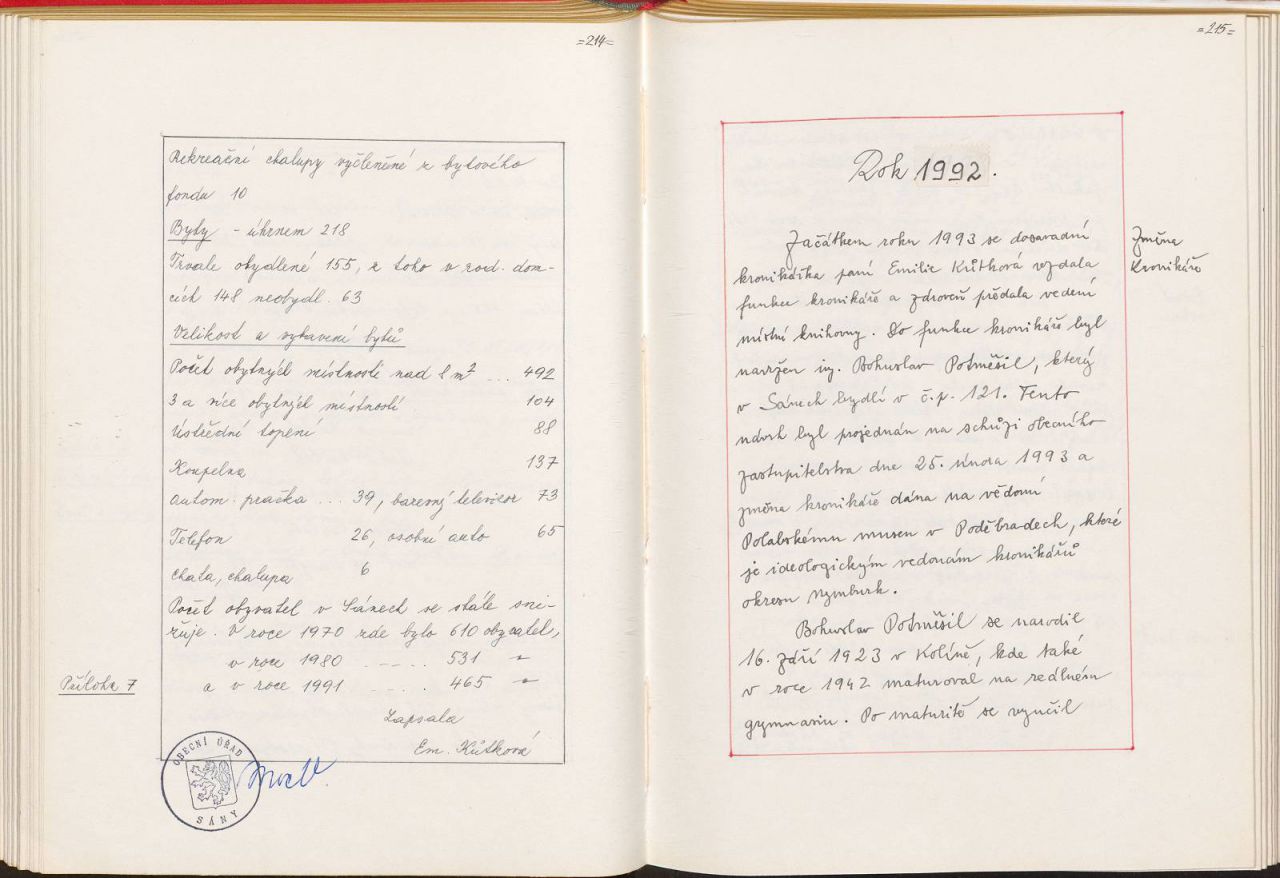 =214=
Rekreační chalupy vyčleněné z bytového
fondu 10
Byty - úhrnem 218
Trvale obydlené 155, z toho v rod. dom-
cích 148 neobydl. 63
Velikost a vybavení bytů
Počet obytných místností nad 8 m² ... 492
3 a více obytných místností 104
Ústřední topení 88
Koupelna 137
autom. pračka ... 39, barevný televizor 73
Telefon 26, osobní auto 65
chata, chalupa 6
Počet obyvatel v Sánech se stále sni-
žuje. V roce 1970 zde bylo 610 obyvatel,
v roce 1980 ..... 531 "
Příloha 7
a v roce 1991 ..... 465 "
Zapsala
Em. Kůtková
OBECNÍ ÚŘAD
SÁNY
=215=
Rok 1992.
Začátkem roku 1993 se dosavadní
kronikářka paní Emilie Kůtková vzdala
funkce kronikáře a zároveň předala vedení
místní knihovny. Do funkce kronikáře byl
navržen ing. Bohuslav Potměšil, který
v Sánech bydlí v č.p. 121. Tento
návrh byl projednán na schůzi obecního
zastupitelstva dne 25. února 1993 a
změna kronikáře dána na vědomí
Polabskému museu v Poděbradech, které
je ideologickým vedoucím kronikářů
okresu Nymburk.
Bohuslav Potměšil se narodil
16. září 1923 v Kolíně, kde také
v roce 1942 maturoval na reálném
gymnasiu. Po maturitě se vyučil
Změna
Kronikáře